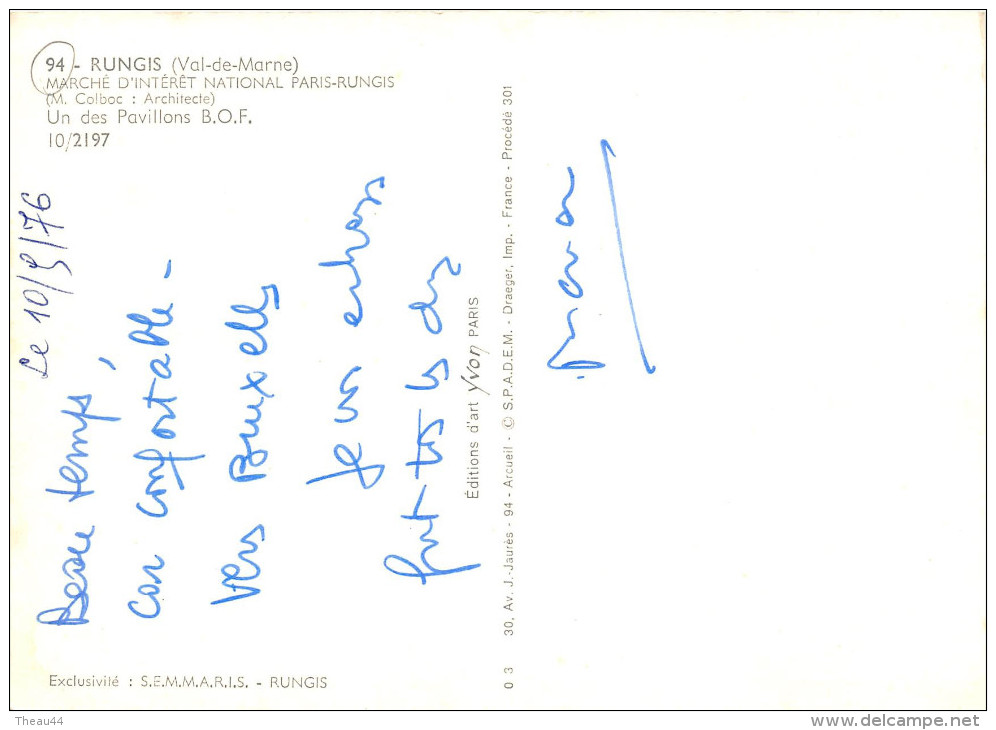 94 - RUNGIS (Val-de-Marne)
MARCHÉ D'INTÉRÊT NATIONAL PARIS-RUNGIS
(M. Colboc : Architecte)
Un des Pavillons B.O.F.
10/2197
Le 10/9/76
Beau temps,
car confortable -
vers Bruxelles
Je vs embrasse
fort ts les
Exclusivité : S.E.M.M.A.R.I.S. - RUNGIS
Éditions d'art Yvon PARIS
0 3 30, Av. J.-Jaurès - 94 - Arcueil - © S.P.A.D.E.M. - Draeger, Imp. - France - Procédé 301
Theau44
www.delcampe.net